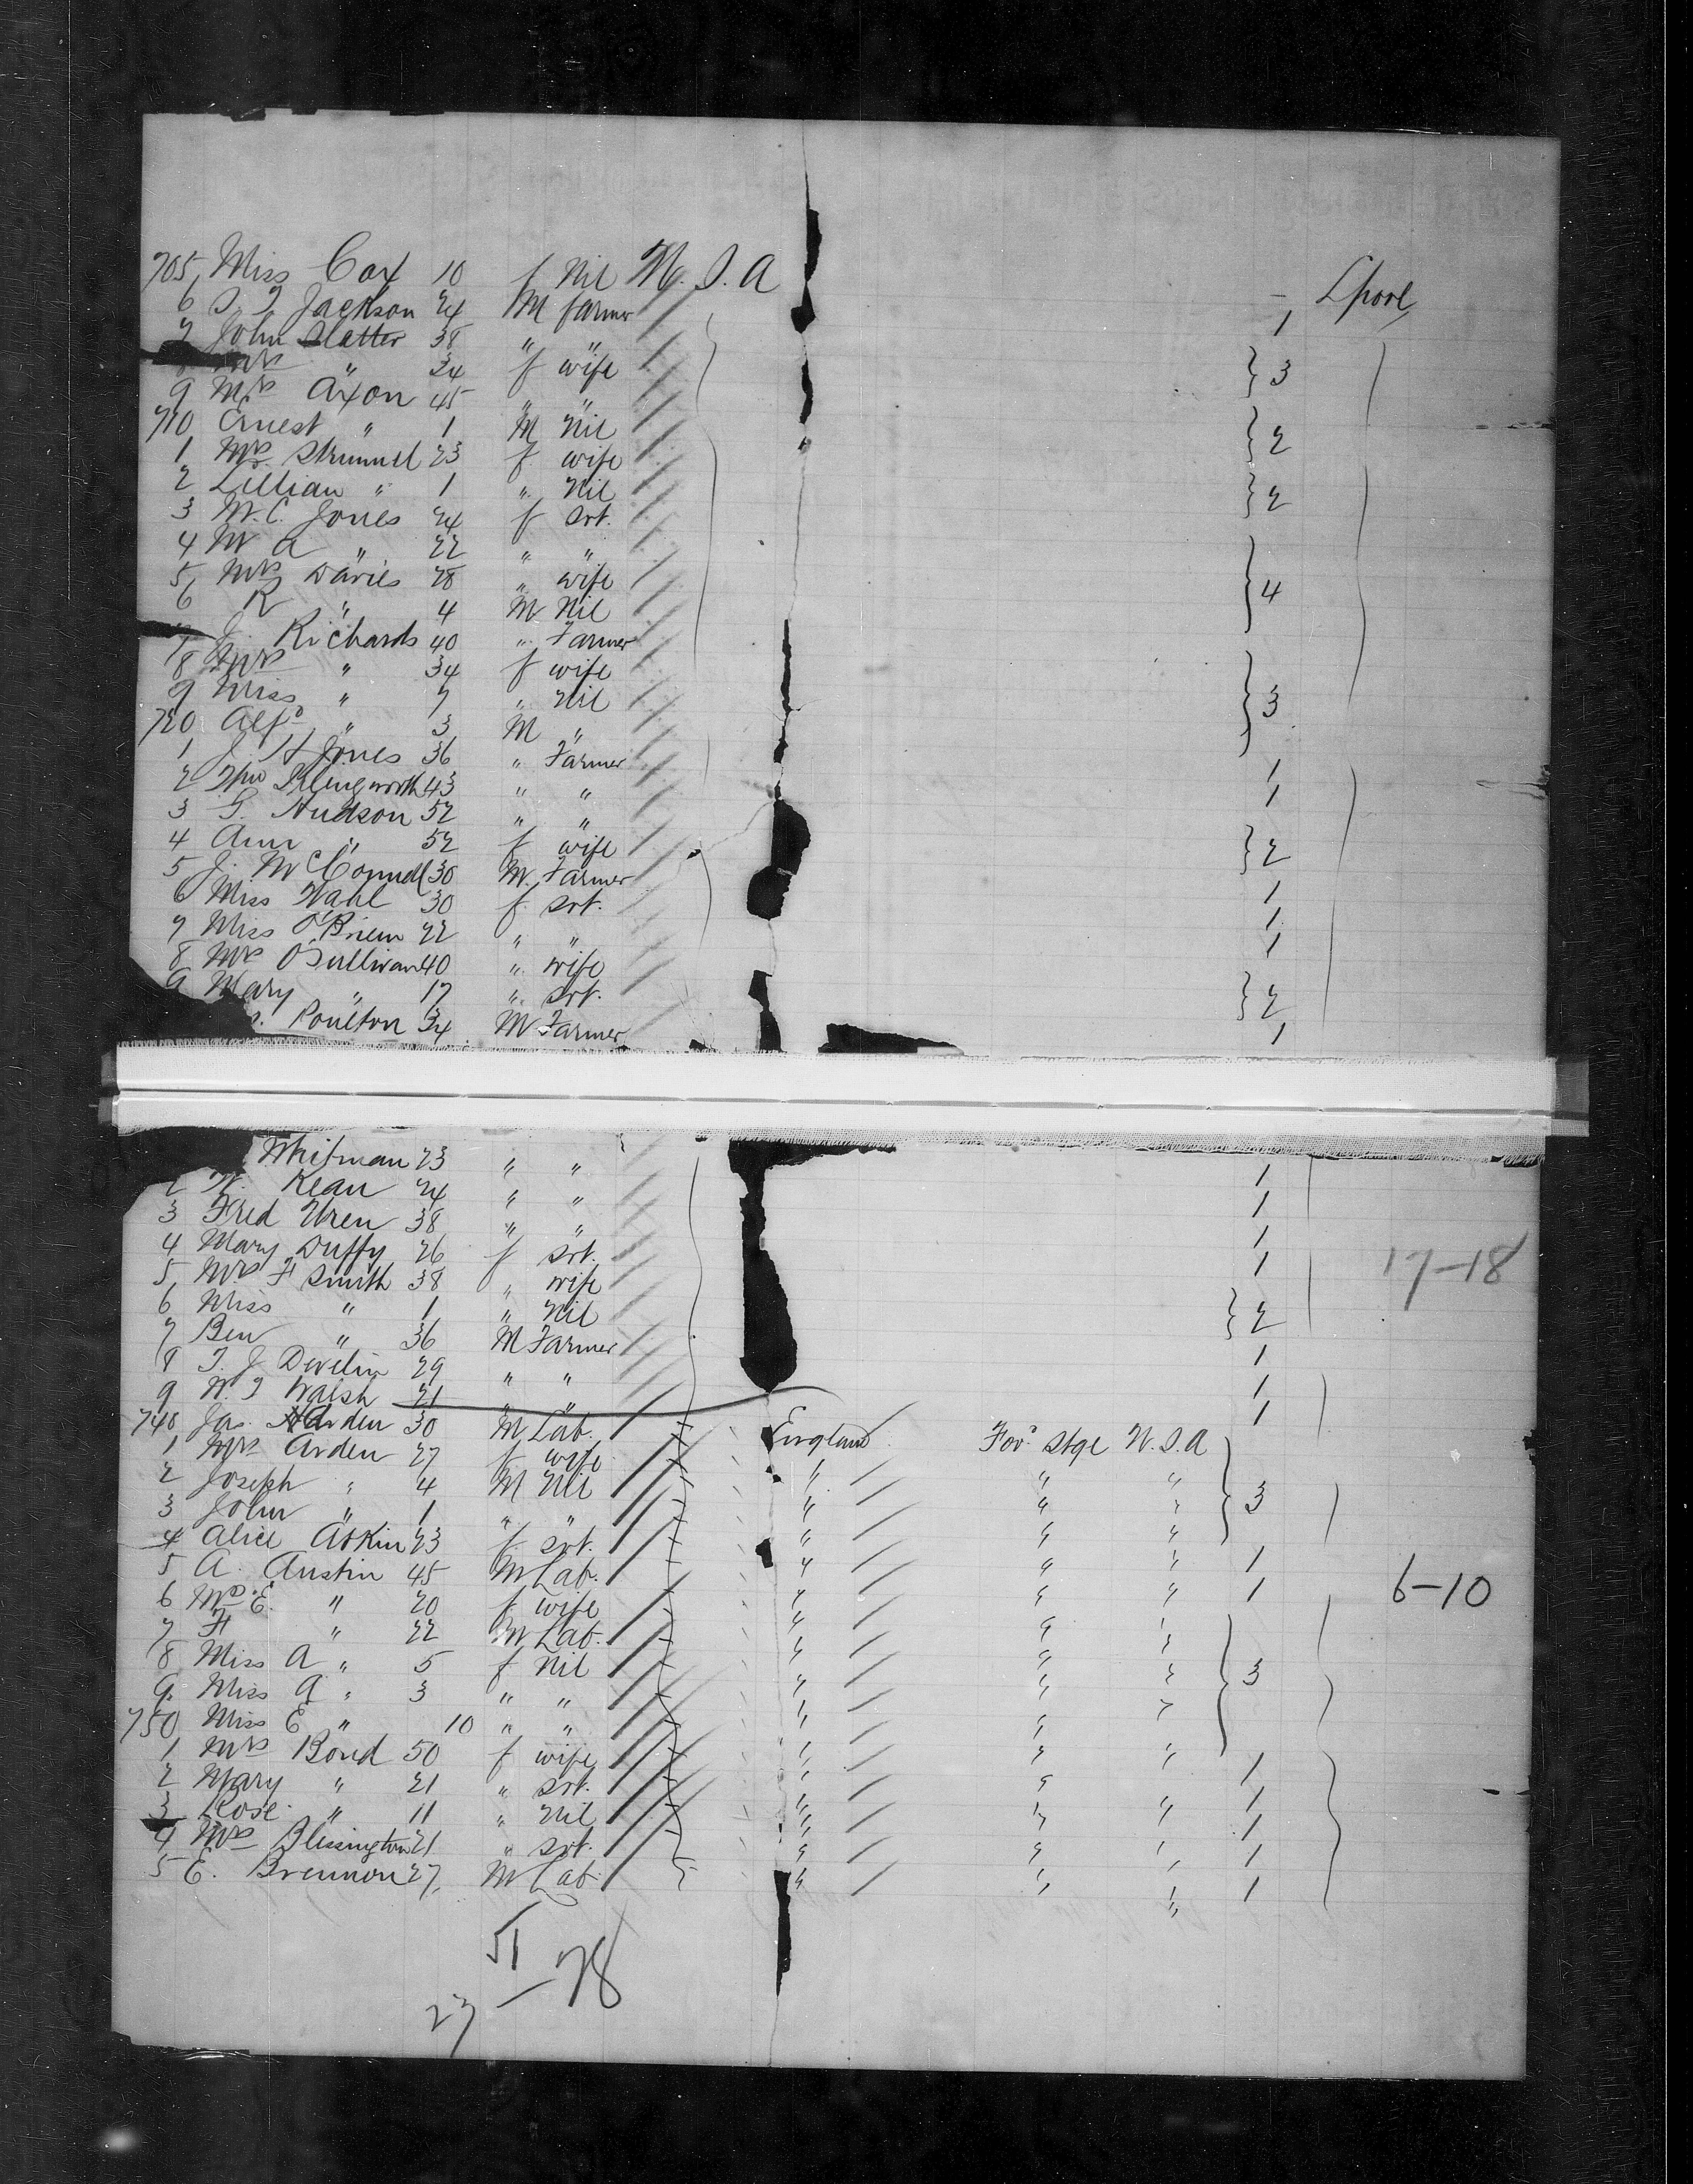 705 Miss Cox 10 f Nil U.S.A - Lpool
6 S. J Jackson 24 M farmer 1
7 John Slatter 38 " "
8 Mrs " 34 f wife } 3
9 Mrs Axon 45 " "
710 Ernest " 1 M Nil } 2
1 Mrs 23 f wife
2 Lillian " 1 " Nil } 2
3 M. C. Jones 24 f Svt.
4 M A " 22 " "
5 Mrs Davies 28 " wife } 4
6 R " 4 M Nil
7 J. Richards 40 " Farmer
8 Mrs " 34 f wife
9 Miss " 7 " Nil } 3
720 Alfd " 3 M "
1 J. H Jones 36 " Farmer 1
2 43 " " 1
3 G. Hudson 52 " "
4 Ann " 52 f wife } 2
5 J. McConnell 30 M. Farmer 1
6 Miss 30 f Svt. 1
7 Miss O'Brien 22 " " 1
8 Mrs O'Sullivan 40 " wife
9 Mary " 17 " Svt. } 2
Poulton 34 M Farmer 1
Whitman 23 " " 1
2 W. Kean 24 " " 1
3 Fred Uren 38 " " 1
4 Mary Duffy 26 f Svt. 1
17-18
5 Mrs F Smith 38 " wife
6 Miss " 1 " Nil } 2
7 Ben " 36 M Farmer 1
8 T. J Develin 29 " " 1
9 W. J Walsh 21 " " 1
740 Jas. Arden 30 M Lab. England For. Stge U.S.A
1 Mrs Arden 27 f wife " " "
2 Joseph " 4 M Nil " " " } 3
3 John " 1 " " " " "
4 Alice Askin 23 f svt. " " " 1
5 A. Austin 45 M Lab. " " " 1
6-10
6 Mrs E. " 20 f wife " " "
7 F " 22 M Lab. " " "
8 Miss A " 5 f Nil " " " } 3
9 Miss A " 3 " " " " "
750 Miss E " 10 " " " " "
1 Mrs Bond 50 f wife " " " 1
2 Mary " 21 " Svt. " " " 1
3 Rose " 11 " Nil " " " 1
4 Mrs Blissington 21 " svt. " " " 1
5 E. Brennon 27 M Lab. " " " 1
51
23 - 28